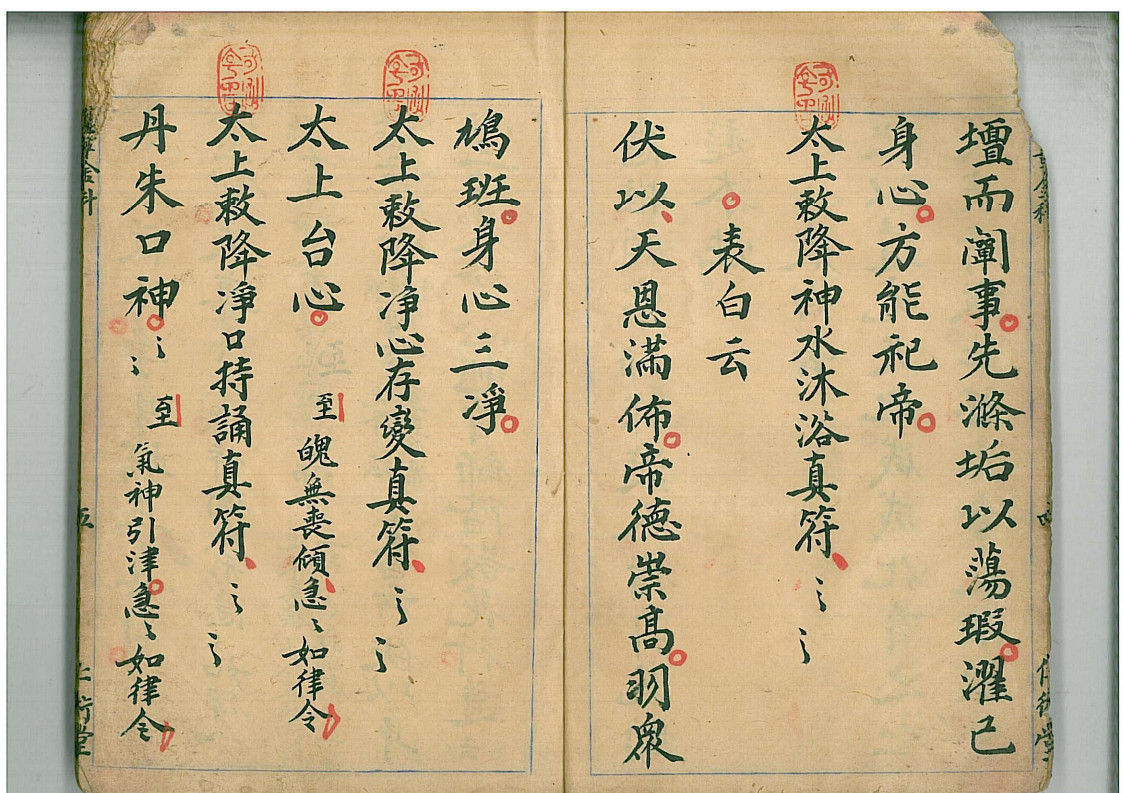 壇而闡事先滌垢以蕩瑕濯己
身心方能祀帝
太上敕降神水沐浴真符〻〻
表白云
伏以天恩滿佈帝德崇高羽眾
鳩班身心三淨
太上敕降净心存變真符〻〻
太上台心 至 魄無喪傾急〻如律令
太上敕降净口持誦真符〻〻
丹朱口神〻〻 至 氣神引津急〻如律令
五